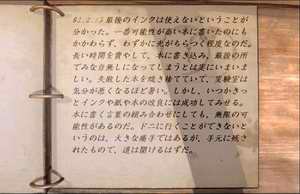 最後のインクは使えないということが
分かった。一番可能性が高い本に書いたのにも
かかわらず、わずかに光がちらつく程度なのだ。
長い時間を費やして、本に書き込み、最後の所
でみな台無しになってしまうとは実にいまいま
しい。失敗した本を焼き捨てていて、実験室は
気分が悪くなるほど暑い。しかし、いつかきっ
とインクや紙や本の改良には成功してみせる。
本に書く言葉の組み合わせにしても、無限の可
能性があるのだ。ドニに行くことができないと
いうのは、大きな痛手ではあるが、手元に残さ
れたもので、道は開けるはずだ。